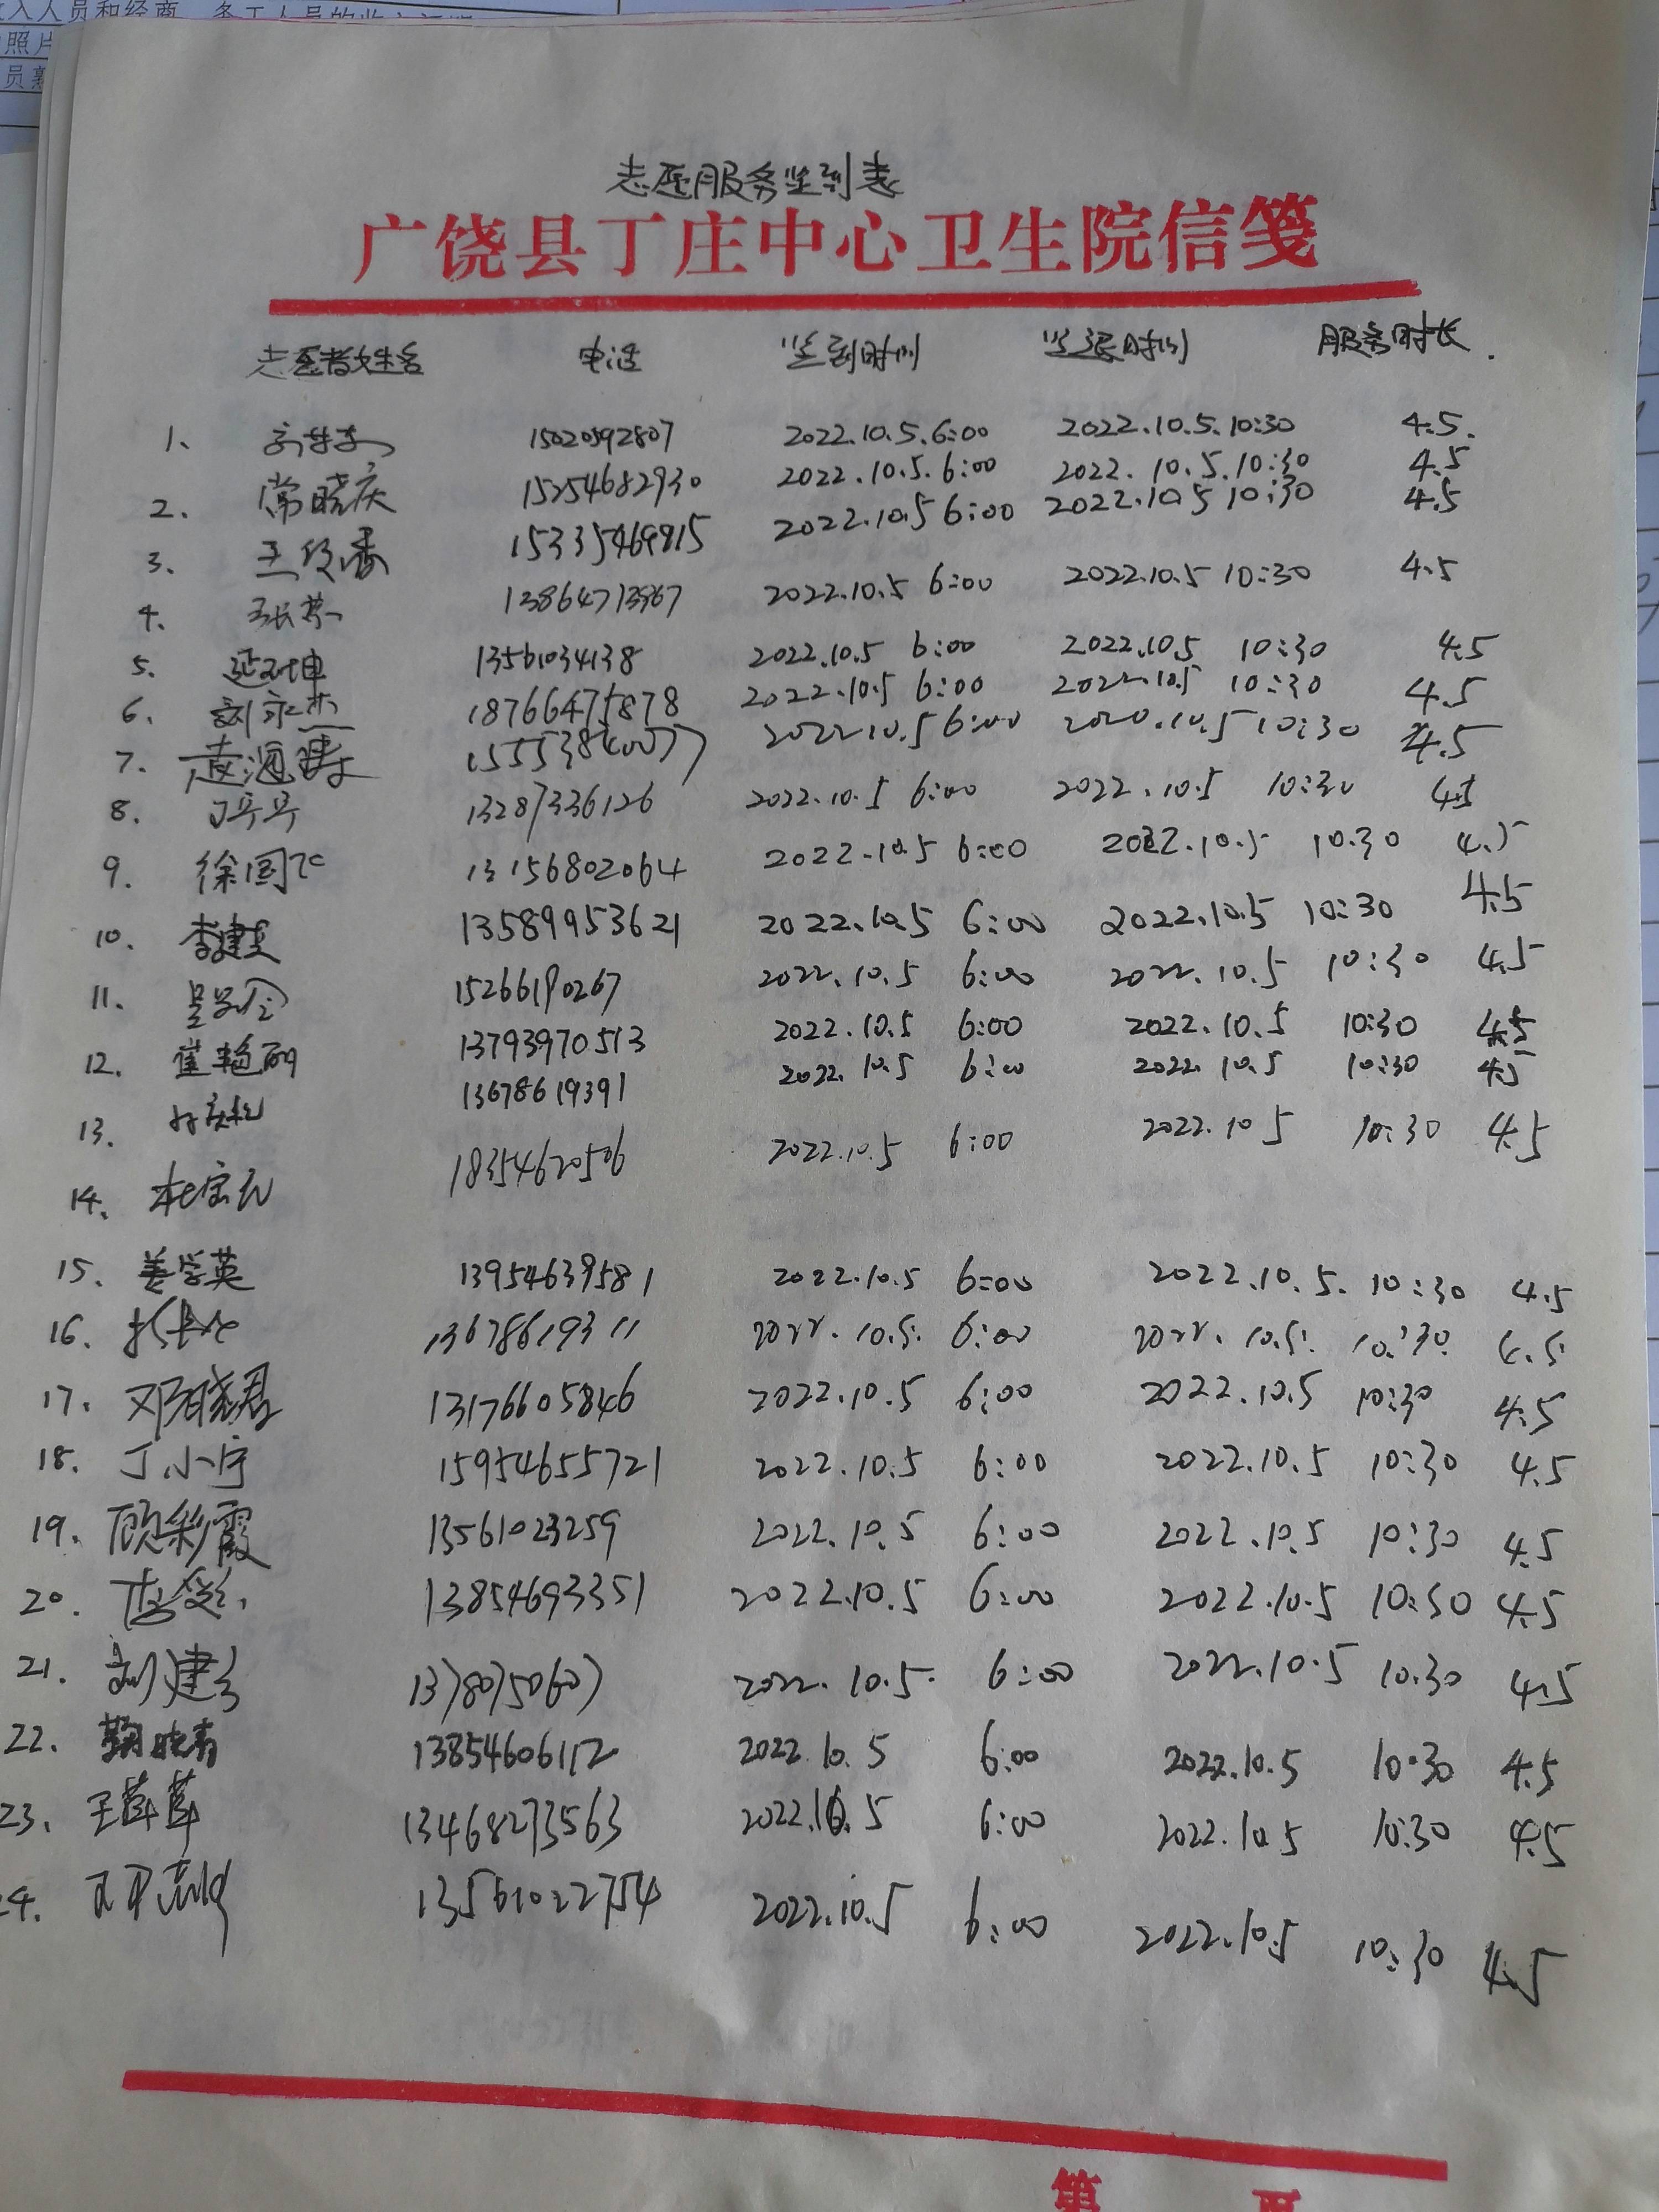 收入人员和经商、务工人员的收入证明
照片
员
志愿服务签到表
广饶县丁庄中心卫生院信笺
志愿者姓名 电话 签到时间 签退时间 服务时长
1、 15020592807 2022.10.5.6:00 2022.10.5.10:30 4.5.
2. 常晓庆 15254682930 2022.10.5.6:00 2022.10.5.10:30 4.5
3. 15335469915 2022.10.5 6:00 2022.10.5 10:30 4.5
4. 13864713967 2022.10.5 6:00 2022.10.5 10:30 4.5
5. 延对坤 13561034138 2022.10.5 6:00 2022.10.5 10:30 4.5
6. 刘永杰 18766475878 2022.10.5 6:00 2022.10.5 10:30 4.5
7. 2022.10.5 6:00 2020.10.5 10:30 4.5
8. 丁兵兵 13287336126 2022.10.5 6:00 2022.10.5 10:30 4.5
9. 徐国 13156802064 2022.10.5 6:00 2022.10.5 10:30 4.5
10. 李建英 13589953621 2022.10.5 6:00 2022.10.5 10:30 4.5
11. 15266190267 2022.10.5 6:00 2022.10.5 10:30 4.5
12. 崔艳丽 13793970513 2022.10.5 6:00 2022.10.5 10:30 4.5
13. 13678619391 2022.10.5 6:00 2022.10.5 10:30 4.5
14. 杜宝 18354620506 2022.10.5 6:00 2022.10 5 10:30 4.5
15. 姜学英 13954639581 2022.10.5 6:00 2022.10.5. 10:30 4.5
16. 13678619311 2022.10.5. 6:00 2022.10.5. 10:30 4.5
17. 邓晓君 13176605846 2022.10.5 6:00 2022.10.5 10:30 4.5
18. 丁小宁 15954655721 2022.10.5 6:00 2022.10.5 10:30 4.5
19. 顾彩霞 13561023259 2022.10.5 6:00 2022.10.5 10:30 4.5
20. 13854693351 2022.10.5 6:00 2022.10.5 10:30 4.5
21. 刘建 13780750607 2022.10.5. 6:00 2022.10.5 10:30 4.5
22. 鞠晓青 13854606112 2022.10.5 6:00 2022.10.5 10:30 4.5
23. 王萍萍 13468273563 2022.10.5 6:00 2022.10.5 10:30 4.5
24. 13561022754 2022.10.5 6:00 2022.10.5 10:30 4.5
第 页